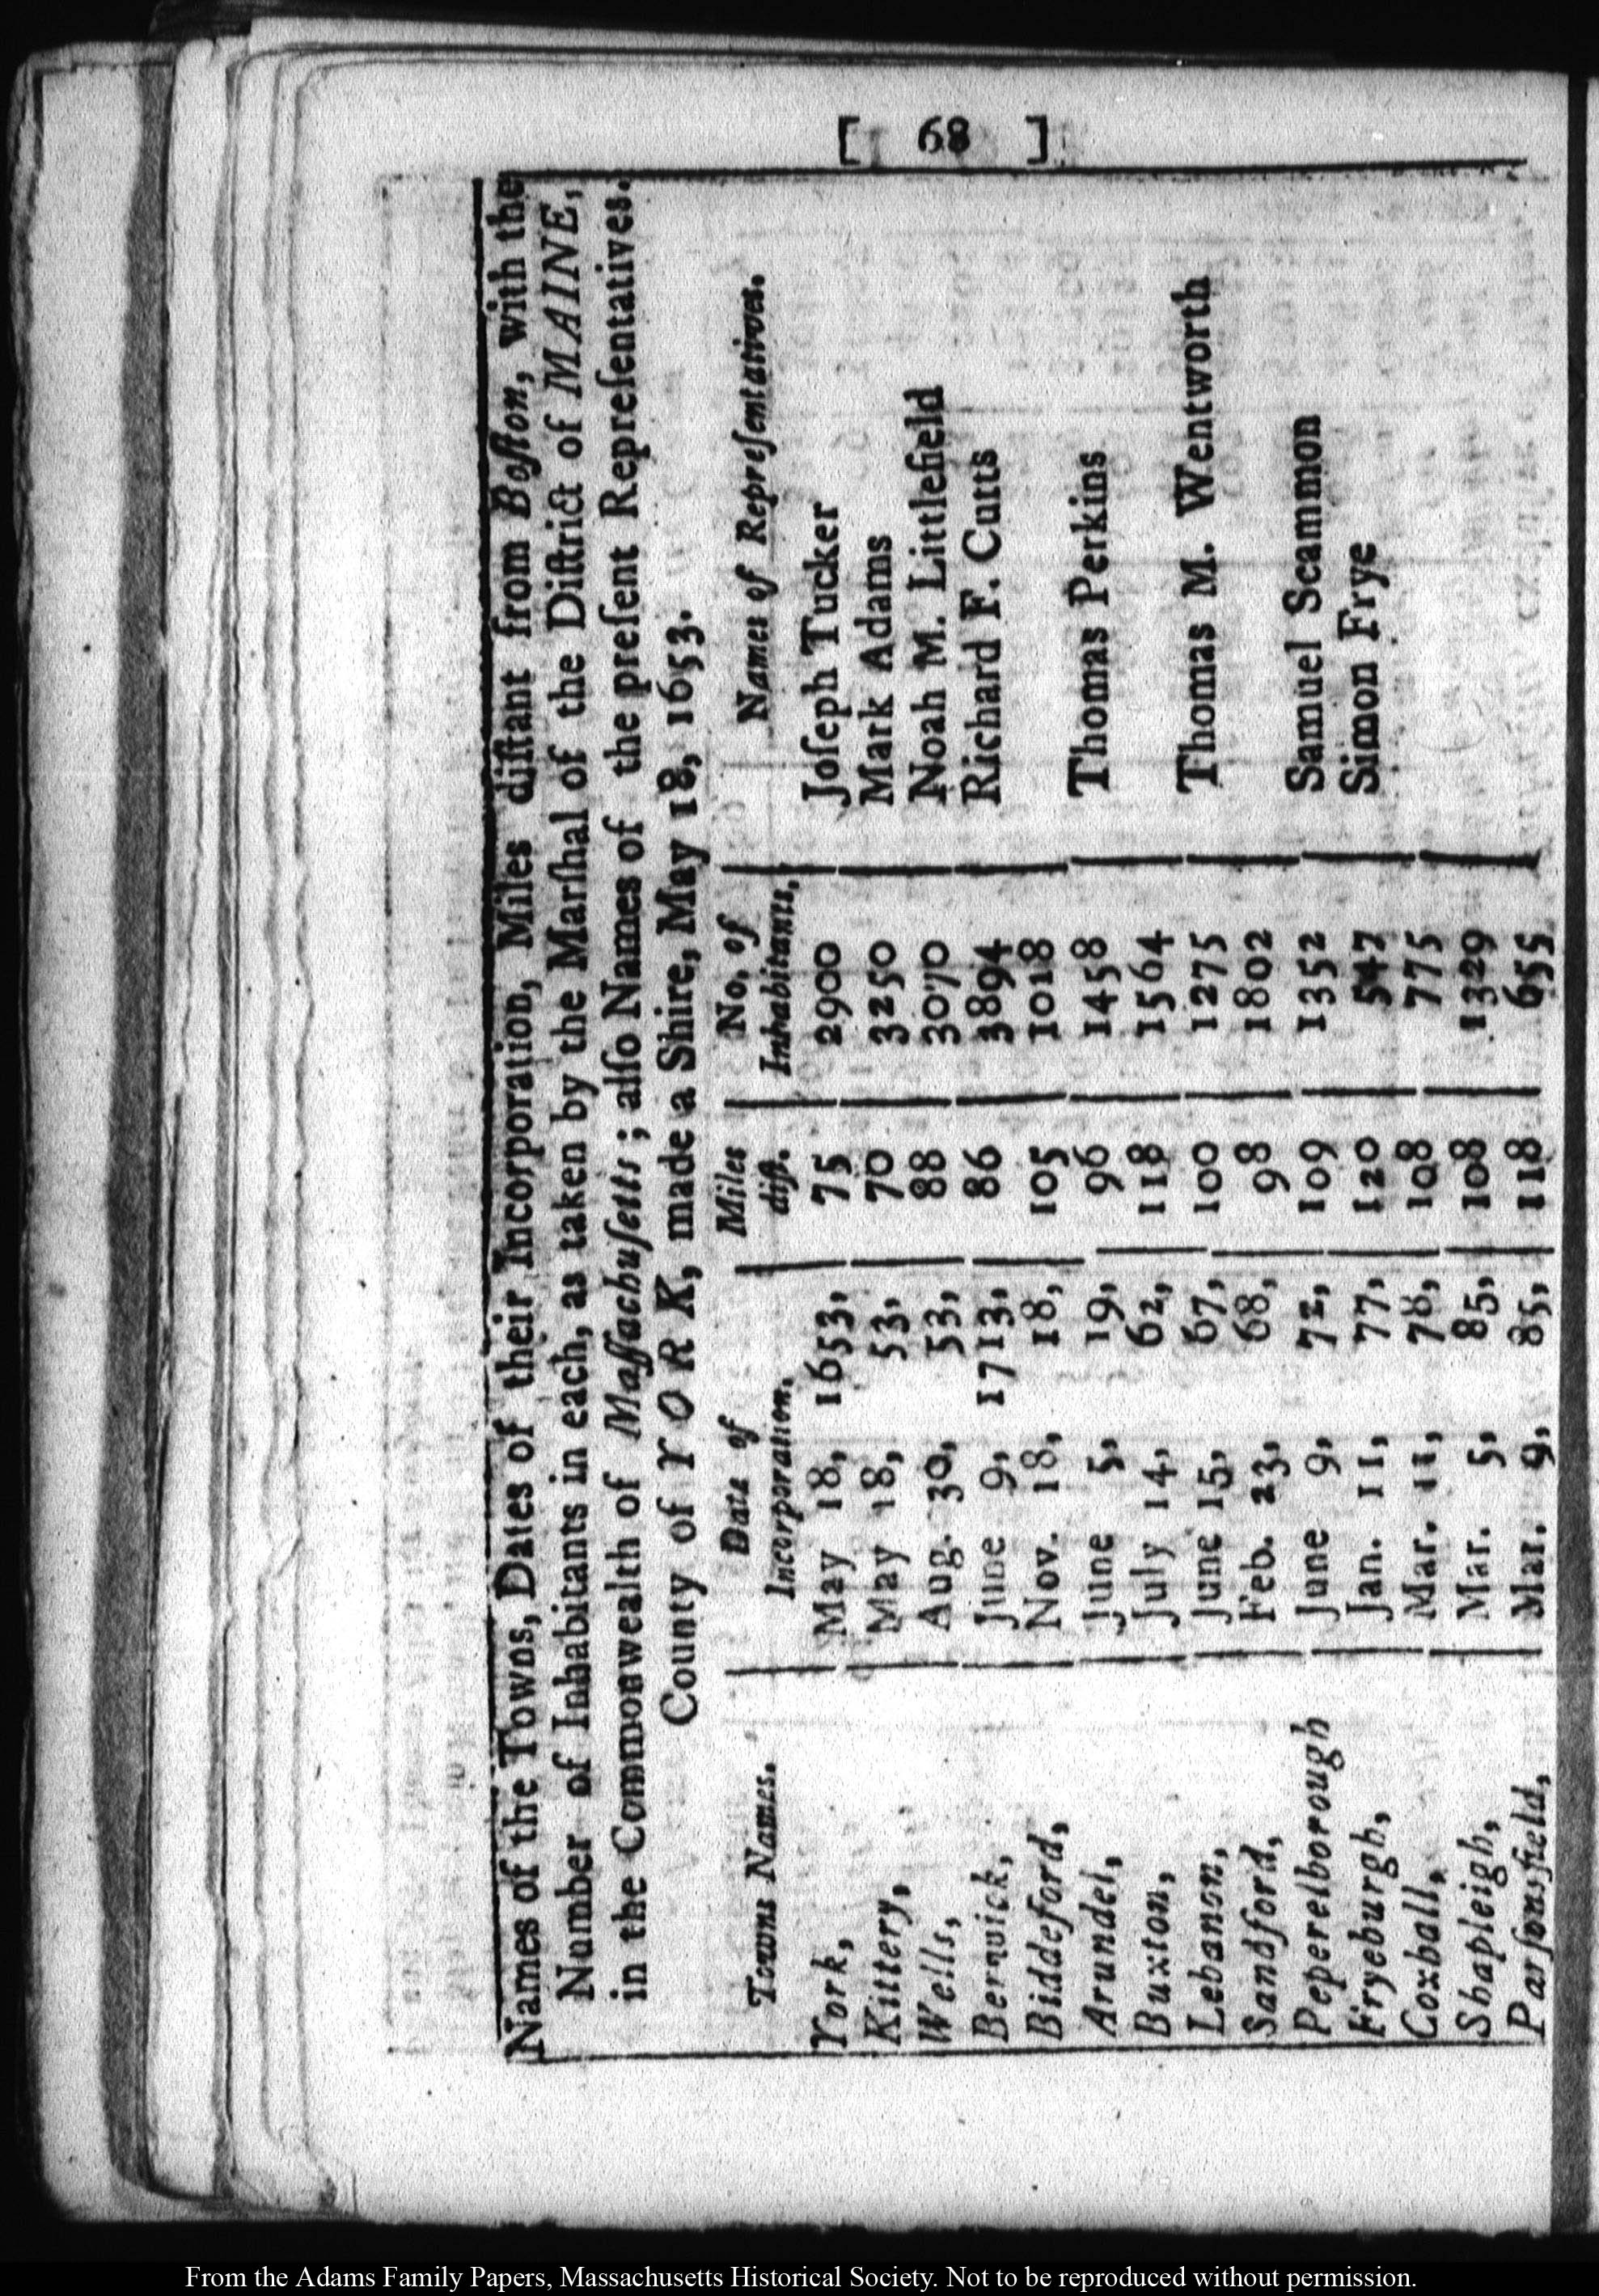 [ 68 ]
Names of the Towns, Dates of their Incorporation, Miles diſtant from Boſton, with the
Number of Inhabitants in each, as taken by the Marſhal of the Diſtrict of MAINE,
in the Commonwealth of Maſſachuſetts; alſo Names of the preſent Repreſentatives.
County of YORK, made a Shire, May 18, 1653.
Towns Names. | Date of Incorporation. | Miles diſt. | No. of Inhabitants, | Names of Repreſentatives.
York, May 18, 1653, 75 2900 Joſeph Tucker
Kittery, May 18, 53, 70 3250 Mark Adams
Wells, Aug. 30, 53, 88 3070 Noah M. Littlefield
Berwick, June 9, 1713, 86 3894 Richard F. Cutts
Biddeford, Nov. 18, 18, 105 1018
Arundel, June 5, 19, 96 1458 Thomas Perkins
Buxton, July 14, 62, 118 1564
Lebanon, June 15, 67, 100 1275 Thomas M. Wentworth
Sandford, Feb. 23, 68, 98 1802
Peperelborough June 9, 72, 109 1352 Samuel Scammon
Fryeburgh, Jan. 11, 77, 120 547 Simon Frye
Coxhall, Mar. 11, 78, 108 775
Shapleigh, Mar. 5, 85, 108 1329
Parſonsfield, Mar. 9, 85, 118 655
From the Adams Family Papers, Massachusetts Historical Society. Not to be reproduced without permission.